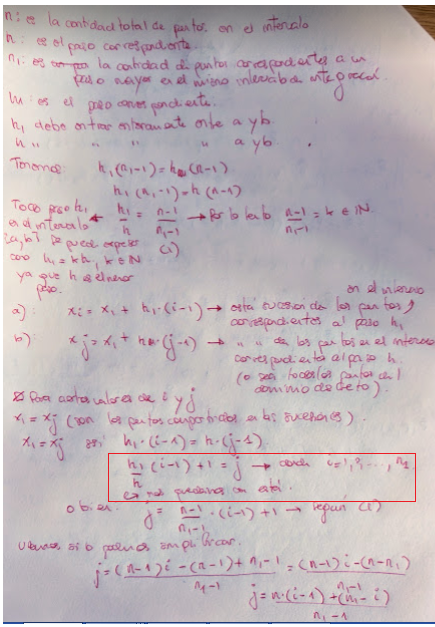 n: es la cantidad total de puntos en el intervalo
h: es el paso correspondiente.
n₁: es la cantidad de puntos correspondientes a un
paso mayor en el mismo intervalo de integración.
h₁: es el paso correspondiente.
h₁ debe entrar enteramente entre a y b.
h " " " " a y b.
Tenemos: h₁(n₁-1) = h(n-1)
h₁(n₁-1) = h(n-1)
Todo paso h₁ ← h₁/h = (n-1)/(n₁-1) → Por lo tanto (n-1)/(n₁-1) = k ∈ ℕ
en el intervalo (1)
[a,b] se puede expresar
como h₁ = kh, k ∈ ℕ
ya que h es el menor
paso.
a): xi = x₁ + h₁·(i-1) → está sucesión de los puntos en el intervalo
correspondientes al paso h₁
b): xj = x₁ + h·(j-1) → " " de los puntos en el intervalo
correspondiente al paso h.
(o sea todos los puntos en el
dominio de cto).
Para ciertos valores de i y j
xi = xj (son los puntos compartidos en las sucesiones).
xi = xj si: h₁·(i-1) = h·(j-1)
h₁/h (i-1) + 1 = j → con i = 1, 2, ..., n₁
↳ nos quedamos con esta.
o bien: j = (n-1)/(n₁-1) · (i-1) + 1 → según (1)
Veamos si lo podemos simplificar.
j = ((n-1)i - (n-1) + n₁-1)/(n₁-1) = ((n-1)i - (n-n₁))/(n₁-1)
j = (n·(i-1) + (n₁-i))/(n₁-1)